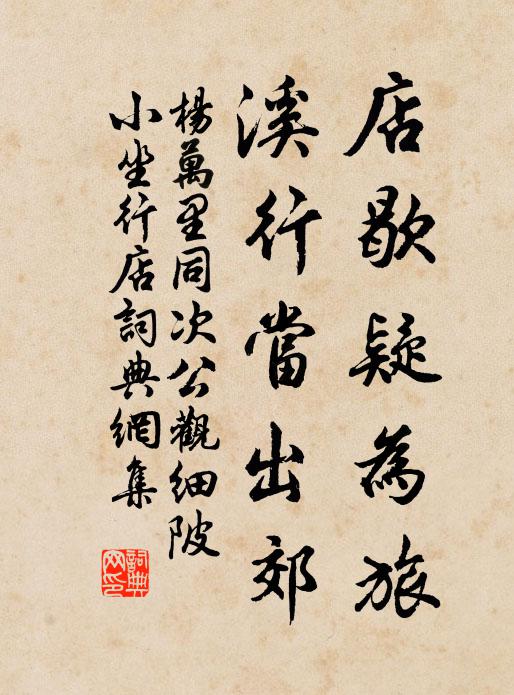 店歇疑為旅
溪行當出郊
楊萬里同次公觀細陂
小坐行店詞典網集
詞典
网印